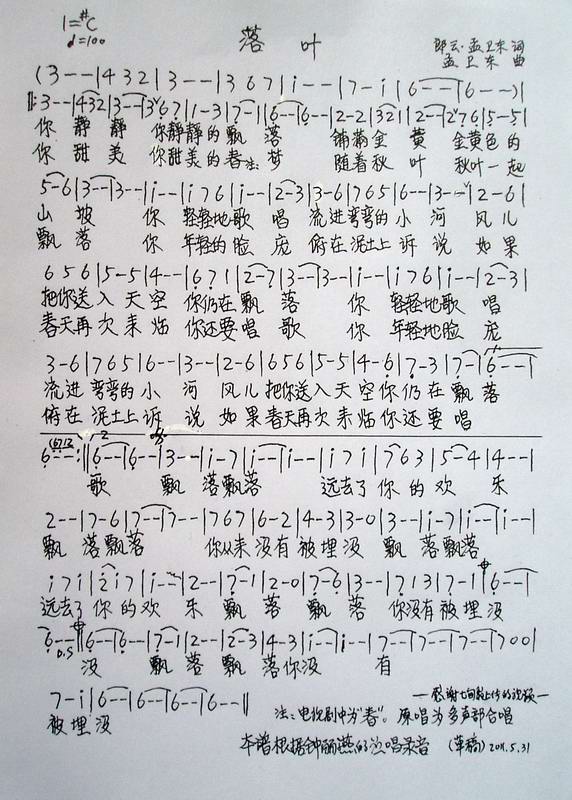 1=#C
♩=100
落 叶
郎云·孟卫东 词
孟 卫 东 曲
(3--|432|3--|367|i--|7-i|6--|6--)|
‖:3--|432|3--|367|1-3|7-1|6--|6--|2-2|321|2--|276|5-5|
你 静静 你静静的飘 落 铺满金 黄 金黄色的
你 甜美 你甜美的春注:梦 随着秋 叶 秋叶一起
5-6|3--|3--|i--|i76|i--|2-3|3-6|765|6--|3--|2-6|
山坡 你 轻轻地歌 唱 流进弯弯的小 河 风儿
飘落 你 年轻的脸 庞 俯在泥土上诉 说 如果
656|5-5|4--|671|2-7|3--|3--|i--|i76|i--|2-3|
把你送入天空 你仍在飘 落 你 轻轻地歌 唱
春天再次来临 你还要唱 歌 你 年轻地脸 庞
3-6|765|6--|3--|2-6|656|5-5|4-6|7-3|7-1|6--|
流进弯弯的小 河 风儿把你送入天空你仍在飘落
俯在泥土上诉 说 如果春天再次来临你还要唱
6--:‖6--|6--|3--|i-7|i--|i--|i7i|763|5-4|4--|
歌 飘 落飘落 远去了你的欢 乐
2--|7-6|7--|7--|767|6-2|4-3|3-0|3--|i-7|i--|i--|
飘 落飘落 你从来没有被埋没 飘 落飘落
i7i|2i7|i--|2--|7-1|2-0|7-6|3--|713|7-1|6--|
远去了你的欢 乐 飘 落 飘 落 你没有被埋没
6--‖6--|6--|7-1|2--|2-3|4-3|i--|i--|7--|7--|7--|700|
没 飘落 飘落你没 有
7-i|6--|6--|6--|6--‖
被埋没
注:电视剧中为“春”。原唱为多声部合唱
本谱根据钟丽燕的演唱录音 (草稿) 2011.5.31